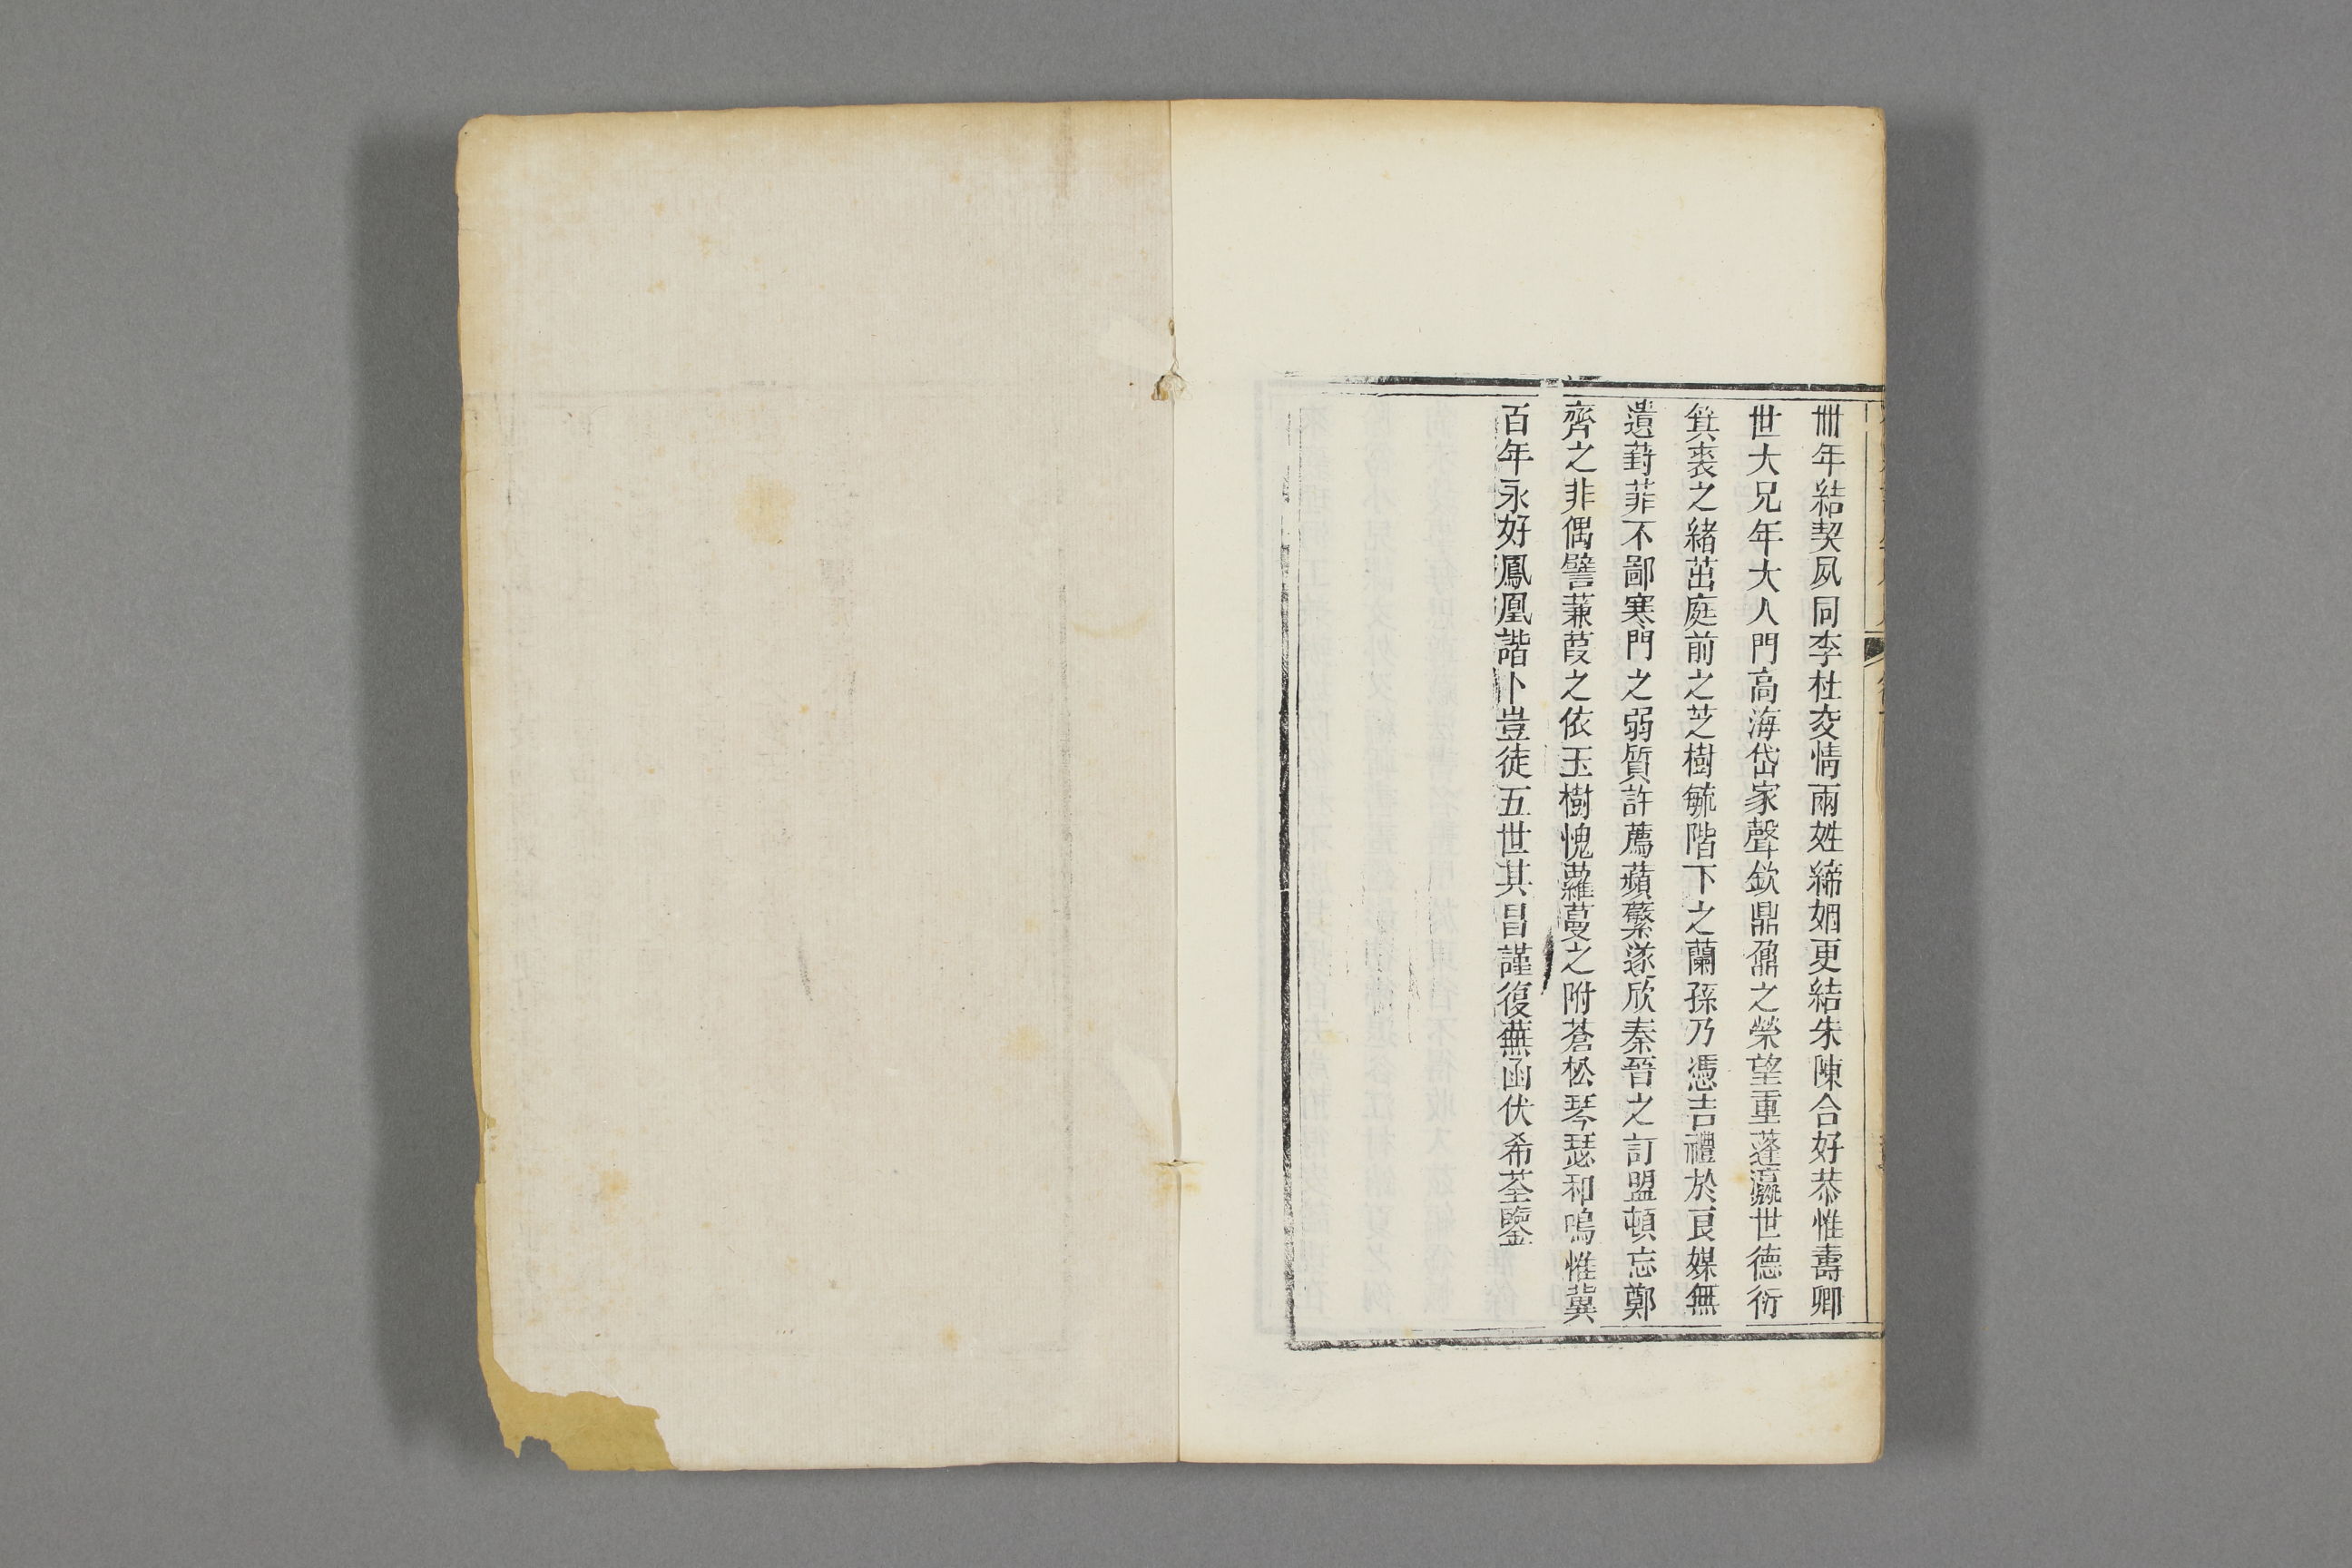 卌年結契夙同李杜交情兩姓締姻更結朱陳合好恭惟壽卿
世大兄年大人門高海岱家聲欽鼎鼐之榮望重蓬瀛世德衍
箕裘之緒茁庭前之芝樹毓階下之蘭孫乃憑吉禮於良媒無
遺葑菲不鄙寒門之弱質許薦蘋蘩遂欣秦晉之訂盟頓忘鄭
齊之非偶譬蒹葭之依玉樹愧蘿蔓之附蒼松琴瑟和鳴惟冀
百年永好鳳凰諧卜豈徒五世其昌謹復蕪函伏希荃鑒